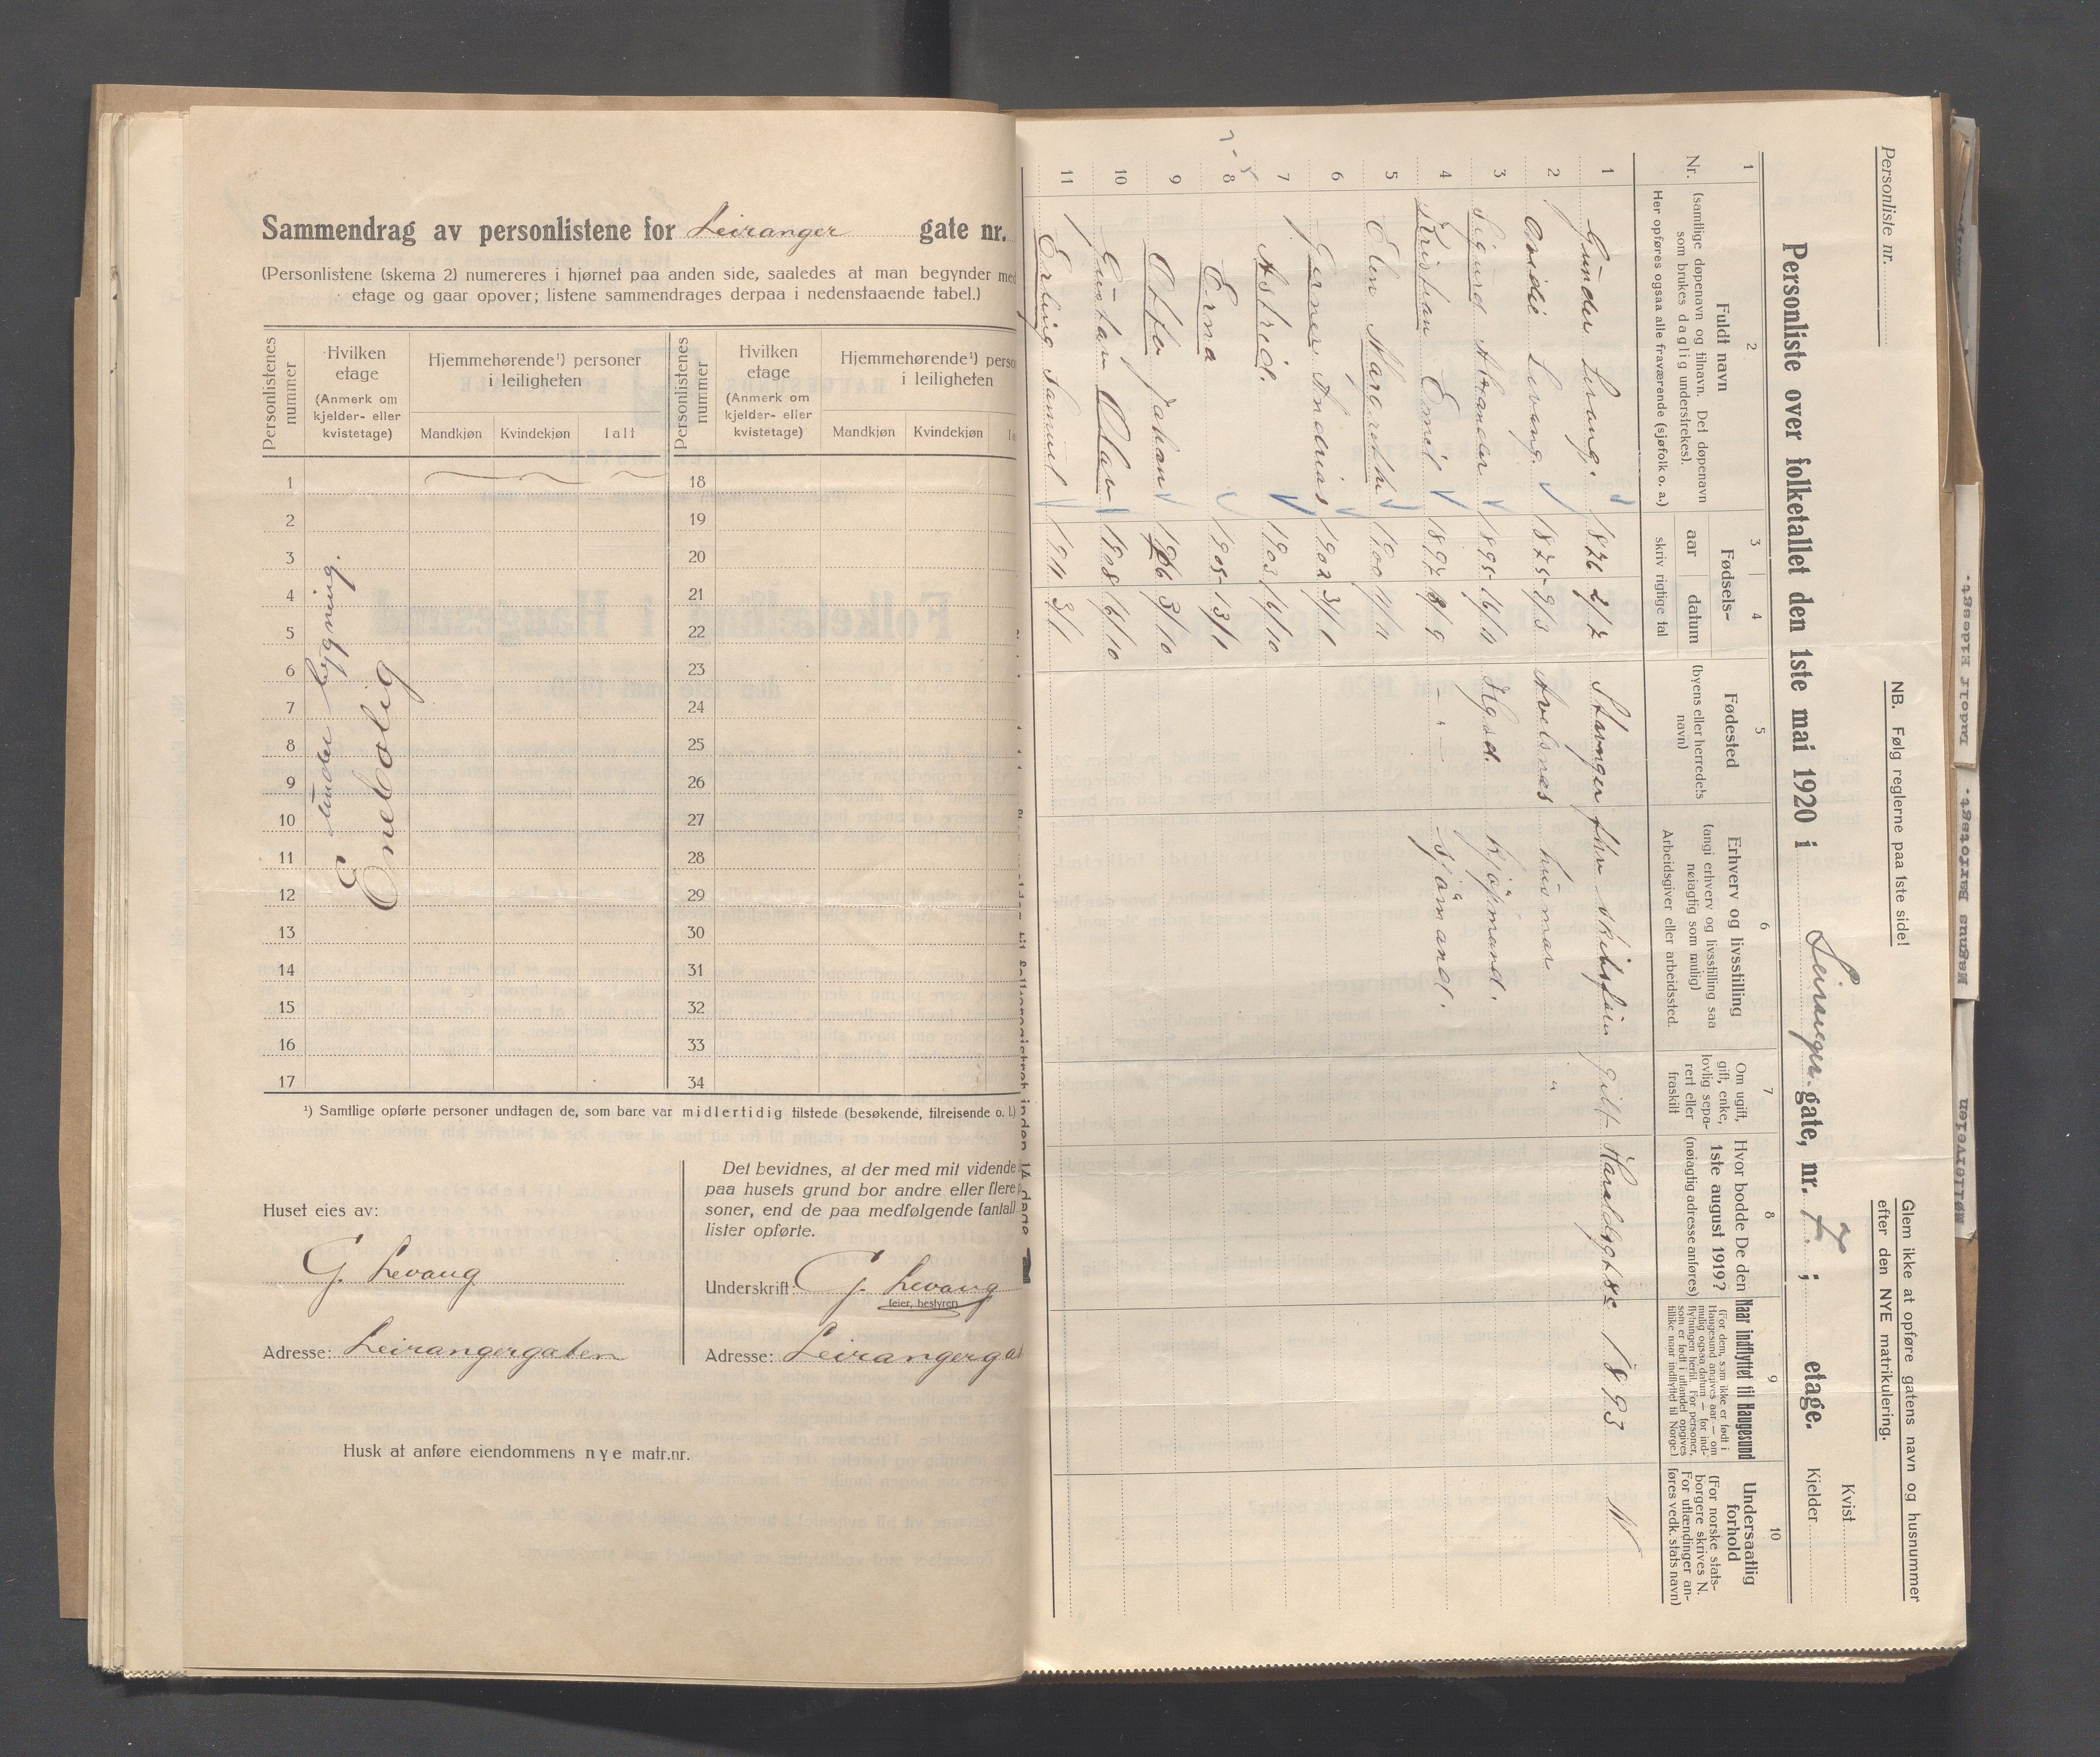 Sammendrag av personlistene for Leiranger gate nr.
(Personlistene (skema 2) numereres i hjørnet paa anden side, saaledes at man begynder me
etage og gaar opover; listene sammendrages derpaa i nedenstaaende tabel.)
Personlistenes nummer
Hvilken etage
(Anmerk om kjelder- eller kvistetage)
Hjemmehørende¹) personer i leiligheten
Mandkjøn Kvindekjøn Ialt
Personlistenes nummer
Hvilken etage
(Anmerk om kjelder- eller kvistetage)
Hjemmehørende¹) perso
i leiligheten
Mandkjøn Kvindekjøn Ia
1 18
2 19
3 20
4 21
5 22
6 23
7 24
8 25
9 26
10 27
11 28
12 29
13 30
14 31
15 32
16 33
17 34
Enebolig
¹) Samtlige opførte personer undtagen de, som bare var midlertidig tilstede (besøkende, tilreisende o. l.)
Huset eies av:
G. Levang
Adresse: Leirangergaten
Det bevidnes, at der med mit vidende
paa husets grund bor andre eller flere p
soner, end de paa medfølgende (antal)
lister opførte.
Underskrift: G. Levang
(eier, bestyrer)
Adresse: Leirangerga
Husk at anføre eiendommens nye matr.nr.
Personliste nr.
NB. Følg reglerne paa 1ste side!
Glem ikke at opføre gatens navn og husnummer
efter den NYE matrikulering.
Personliste over folketallet den 1ste mai 1920 i Leiranger gate, nr. ; etage.
Kvist
Kjelder
1 2 3 4 5 6 7 8 9 10
Nr.
Fuldt navn
(samtlige døpenavn og tilnavn. Det døpenavn som brukes daglig understrekes).
Her opføres ogsaa alle fraværende (sjøfolk o. a.)
Fødsels-
aar datum
skriv rigtige tal
Fødested
(byens eller herredets navn)
Erhverv og livsstilling
(angi erhverv og livsstilling saa nøiagtig som mulig)
Arbeidsgiver eller arbeidssted.
Om ugift, gift, enke, lovlig separert eller fraskilt
Hvor bodde De den 1ste august 1919?
(nøiagtig adresse anføres)
Naar indflyttet til Haugesund
(For dem, som ikke er født i Haugesund angives aar — om mulig ogsaa datum — for indflytningen hertil. For personer, som er født i utlandet opgives tillike naar indflyttet til Norge.)
Undersaatlig forhold
(For norske statsborgere skrives N. For utlændinger anføres vedk. stats navn)
1 Gunder Levang. 1876 2/7 Stavanger fhv skibsfører gift Haraldsgt 82 1893 N
2 Levang. 1875 9/3 Avelsnes husmor "
3 Sigurd 1895 16/11 Hgsd. Kjøpmand.
4 Kristian Emil 1897 8/9 - " - sjømand.
5 Elen Margrethe 1900
6 Gerner Andreas 1902 3/1
7 Astrid. 1903 16/10
8 Erna 1905 13/1
9 Otto Johan 1906 3/10
10 Gustav Olav 1908 16/10
11 Erling Samuel 1911 3/1
Ladoir Eidegst.
Magnus Barfotsgt.
Møllerveien